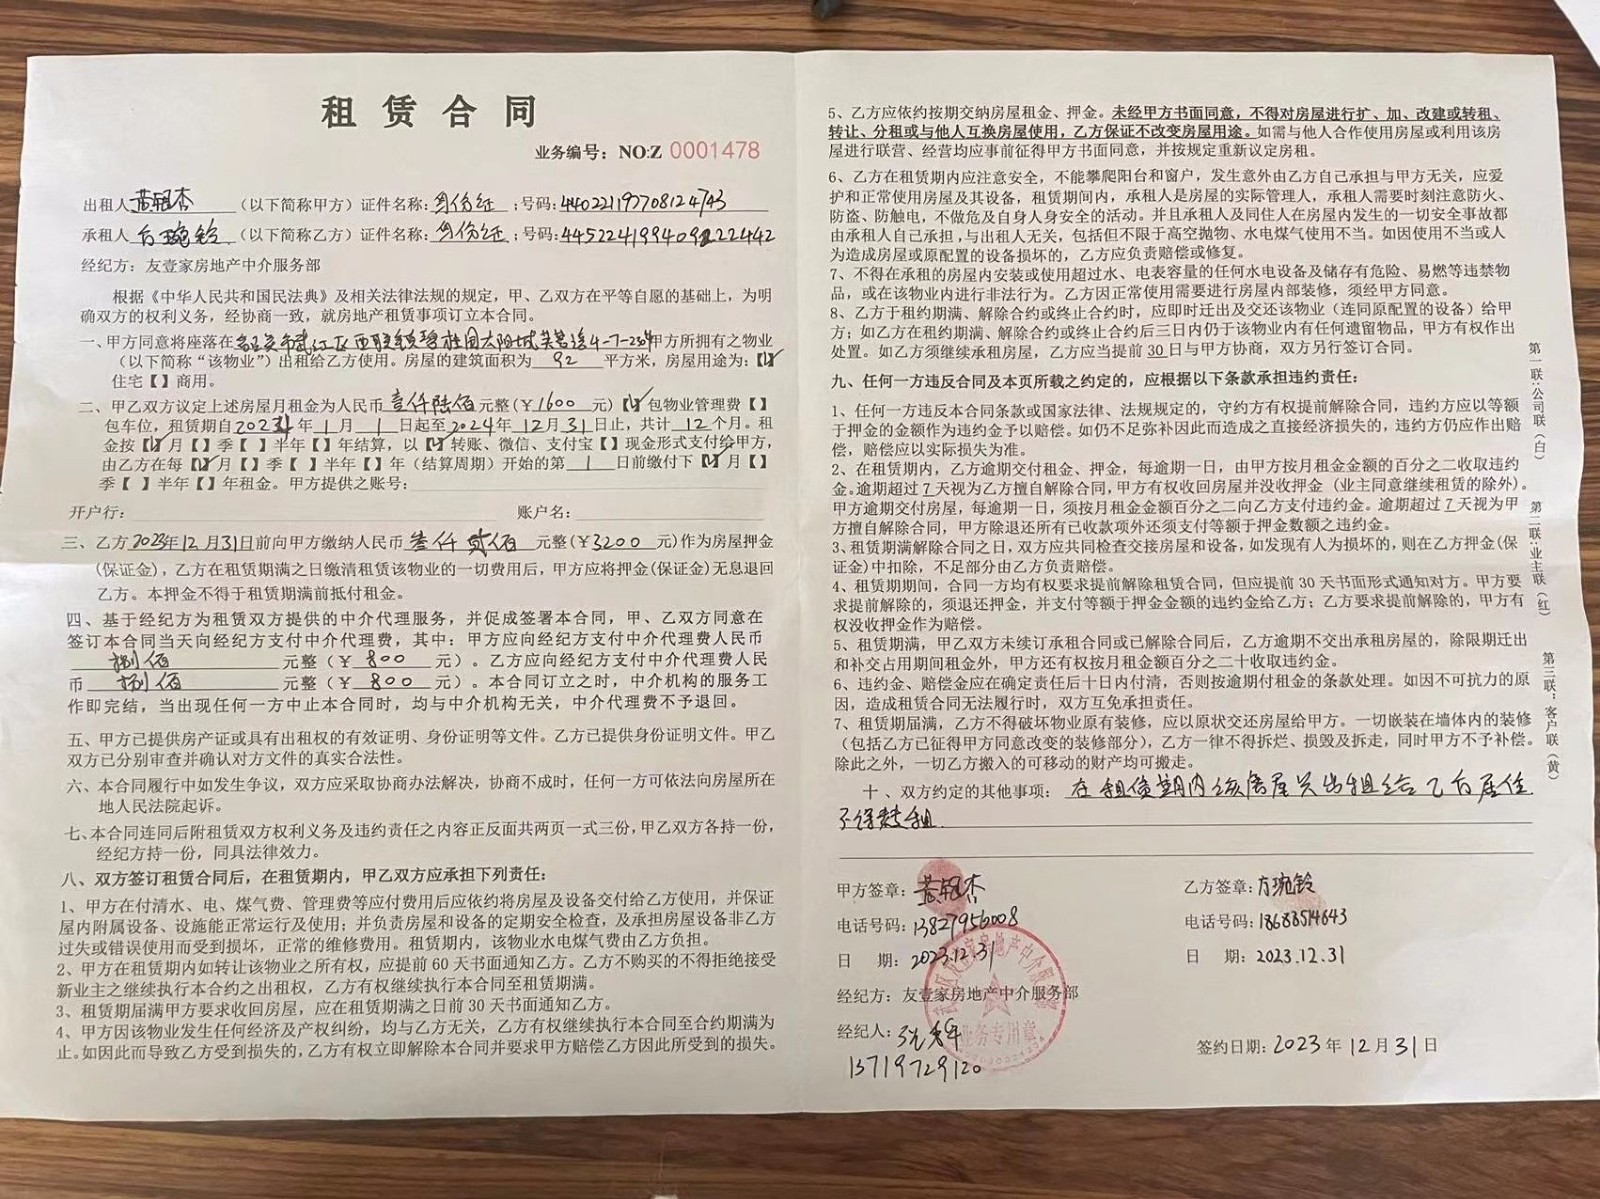 租赁合同
业务编号：NO:Z 0001478
出租人 （以下简称甲方）证件名称：身份证；号码：440221197708124743
承租人 方琬铃（以下简称乙方）证件名称：身份证；号码：
经纪方：友壹家房地产中介服务部
根据《中华人民共和国民法典》及相关法律法规的规定，甲、乙双方在平等自愿的基础上，为明
确双方的权利义务，经协商一致，就房地产租赁事项订立本合同。
一、甲方同意将座落在 武江区西联镇碧桂园太阳城芙蓉 4-7- 甲方所拥有之物业
（以下简称“该物业”）出租给乙方使用。房屋的建筑面积为 92 平方米，房屋用途为：【✓】
住宅【 】商用。
二、甲乙双方议定上述房屋月租金为人民币 壹仟陆佰元整(￥1600 元)【✓】包物业管理费【 】
包车位，租赁期自 年 1 月 1 日起至2024年12月31日止，共计 12 个月。租
金按【✓】月【 】季【 】半年【 】年结算，以【✓】转账、微信、支付宝【 】现金形式支付给甲方，
由乙方在每【✓】月【 】季【 】半年【 】年（结算周期）开始的第 1 日前缴付下【✓】月【 】
季【 】半年【 】年租金。甲方提供之账号：
开户行： 账户名：
三、乙方2023年12月31日前向甲方缴纳人民币 叁仟贰佰 元整(￥3200 元)作为房屋押金
(保证金)，乙方在租赁期满之日缴清租赁该物业的一切费用后，甲方应将押金(保证金)无息退回
乙方。本押金不得于租赁期满前抵付租金。
四、基于经纪方为租赁双方提供的中介代理服务，并促成签署本合同，甲、乙双方同意在
签订本合同当天向经纪方支付中介代理费，其中：甲方应向经纪方支付中介代理费人民币
捌佰 元整（￥ 800 元）。乙方应向经纪方支付中介代理费人民
币 捌佰 元整（￥ 800 元）。本合同订立之时，中介机构的服务工
作即完结，当出现任何一方中止本合同时，均与中介机构无关，中介代理费不予退回。
五、甲方已提供房产证或具有出租权的有效证明、身份证明等文件。乙方已提供身份证明文件。甲乙
双方已分别审查并确认对方文件的真实合法性。
六、本合同履行中如发生争议，双方应采取协商办法解决，协商不成时，任何一方可依法向房屋所在
地人民法院起诉。
七、本合同连同后附租赁双方权利义务及违约责任之内容正反面共两页一式三份，甲乙双方各持一份，
经纪方持一份，同具法律效力。
八、双方签订租赁合同后，在租赁期内，甲乙双方应承担下列责任：
1、甲方在付清水、电、煤气费、管理费等应付费用后应依约将房屋及设备交付给乙方使用，并保证
屋内附属设备、设施能正常运行及使用；并负责房屋和设备的定期安全检查，及承担房屋设备非乙方
过失或错误使用而受到损坏，正常的维修费用。租赁期内，该物业水电煤气费由乙方负担。
2、甲方在租赁期内如转让该物业之所有权，应提前60天书面通知乙方。乙方不购买的不得拒绝接受
新业主之继续执行本合约之出租权，乙方有权继续执行本合同至租赁期满。
3、租赁期届满甲方要求收回房屋，应在租赁期满之日前30天书面通知乙方。
4、甲方因该物业发生任何经济及产权纠纷，均与乙方无关，乙方有权继续执行本合同至合约期满为
止。如因此而导致乙方受到损失的，乙方有权立即解除本合同并要求甲方赔偿乙方因此所受到的损失。
5、乙方应依约按期交纳房屋租金、押金。未经甲方书面同意，不得对房屋进行扩、加、改建或转租、
转让、分租或与他人互换房屋使用，乙方保证不改变房屋用途。如需与他人合作使用房屋或利用该房
屋进行联营、经营均应事前征得甲方书面同意，并按规定重新议定房租。
6、乙方在租赁期内应注意安全，不能攀爬阳台和窗户，发生意外由乙方自己承担与甲方无关，应爱
护和正常使用房屋及其设备，租赁期间内，承租人是房屋的实际管理人，承租人需要时刻注意防火、
防盗、防触电，不做危及自身人身安全的活动。并且承租人及同住人在房屋内发生的一切安全事故都
由承租人自己承担,与出租人无关，包括但不限于高空抛物、水电煤气使用不当。如因使用不当或人
为造成房屋或原配置的设备损坏的，乙方应负责赔偿或修复。
7、不得在承租的房屋内安装或使用超过水、电表容量的任何水电设备及储存有危险、易燃等违禁物
品，或在该物业内进行非法行为。乙方因正常使用需要进行房屋内部装修，须经甲方同意。
8、乙方于租约期满、解除合约或终止合约时，应即时迁出及交还该物业（连同原配置的设备）给甲
方；如乙方在租约期满、解除合约或终止合约后三日内仍于该物业内有任何遗留物品，甲方有权作出
处置。如乙方须继续承租房屋，乙方应当提前30日与甲方协商，双方另行签订合同。
九、任何一方违反合同及本页所载之约定的，应根据以下条款承担违约责任：
1、任何一方违反本合同条款或国家法律、法规规定的，守约方有权提前解除合同，违约方应以等额
于押金的金额作为违约金予以赔偿。如仍不足弥补因此而造成之直接经济损失的，违约方仍应作出赔
偿，赔偿应以实际损失为准。
2、在租赁期内，乙方逾期交付租金、押金，每逾期一日，由甲方按月租金金额的百分之二收取违约
金。逾期超过7天视为乙方擅自解除合同，甲方有权收回房屋并没收押金（业主同意继续租赁的除外）。
甲方逾期交付房屋，每逾期一日，须按月租金金额百分之二向乙方支付违约金。逾期超过7天视为甲
方擅自解除合同，甲方除退还所有已收款项外还须支付等额于押金数额之违约金。
3、租赁期满解除合同之日，双方应共同检查交接房屋和设备，如发现有人为损坏的，则在乙方押金(保
证金)中扣除，不足部分由乙方负责赔偿。
4、租赁期期间，合同一方均有权要求提前解除租赁合同，但应提前30天书面形式通知对方。甲方要
求提前解除的，须退还押金，并支付等额于押金金额的违约金给乙方；乙方要求提前解除的，甲方有
权没收押金作为赔偿。
5、租赁期满，甲甲乙双方未续订承租合同或已解除合同后，乙方逾期不交出承租房屋的，除限期迁出
和补交占用期间租金外，甲方还有权按月租金额百分之二十收取违约金。
6、违约金、赔偿金应在确定责任后十日内付清，否则按逾期付租金的条款处理。如因不可抗力的原
因，造成租赁合同无法履行时，双方互免承担责任。
7、租赁期届满，乙方不得破坏物业原有装修，应以原状交还房屋给甲方。一切嵌装在墙体内的装修
（包括乙方已征得甲方同意改变的装修部分），乙方一律不得拆烂、损毁及拆走，同时甲方不予补偿。
除此之外，一切乙方搬入的可移动的财产均可搬走。
十、双方约定的其他事项：在租赁期内该房屋只出租给乙方居住
不得转租.
甲方签章： 乙方签章：方琬铃
电话号码：13827956008 电话号码：18688514643
日 期：2023.12.31 日 期：2023.12.31
经纪方：友壹家房地产中介服务部
经纪人：
13719729120
业务专用章
签约日期：2023年12月31日
第一联：公司联（白）
第二联：业主联（红）
第三联：客户联（黄）